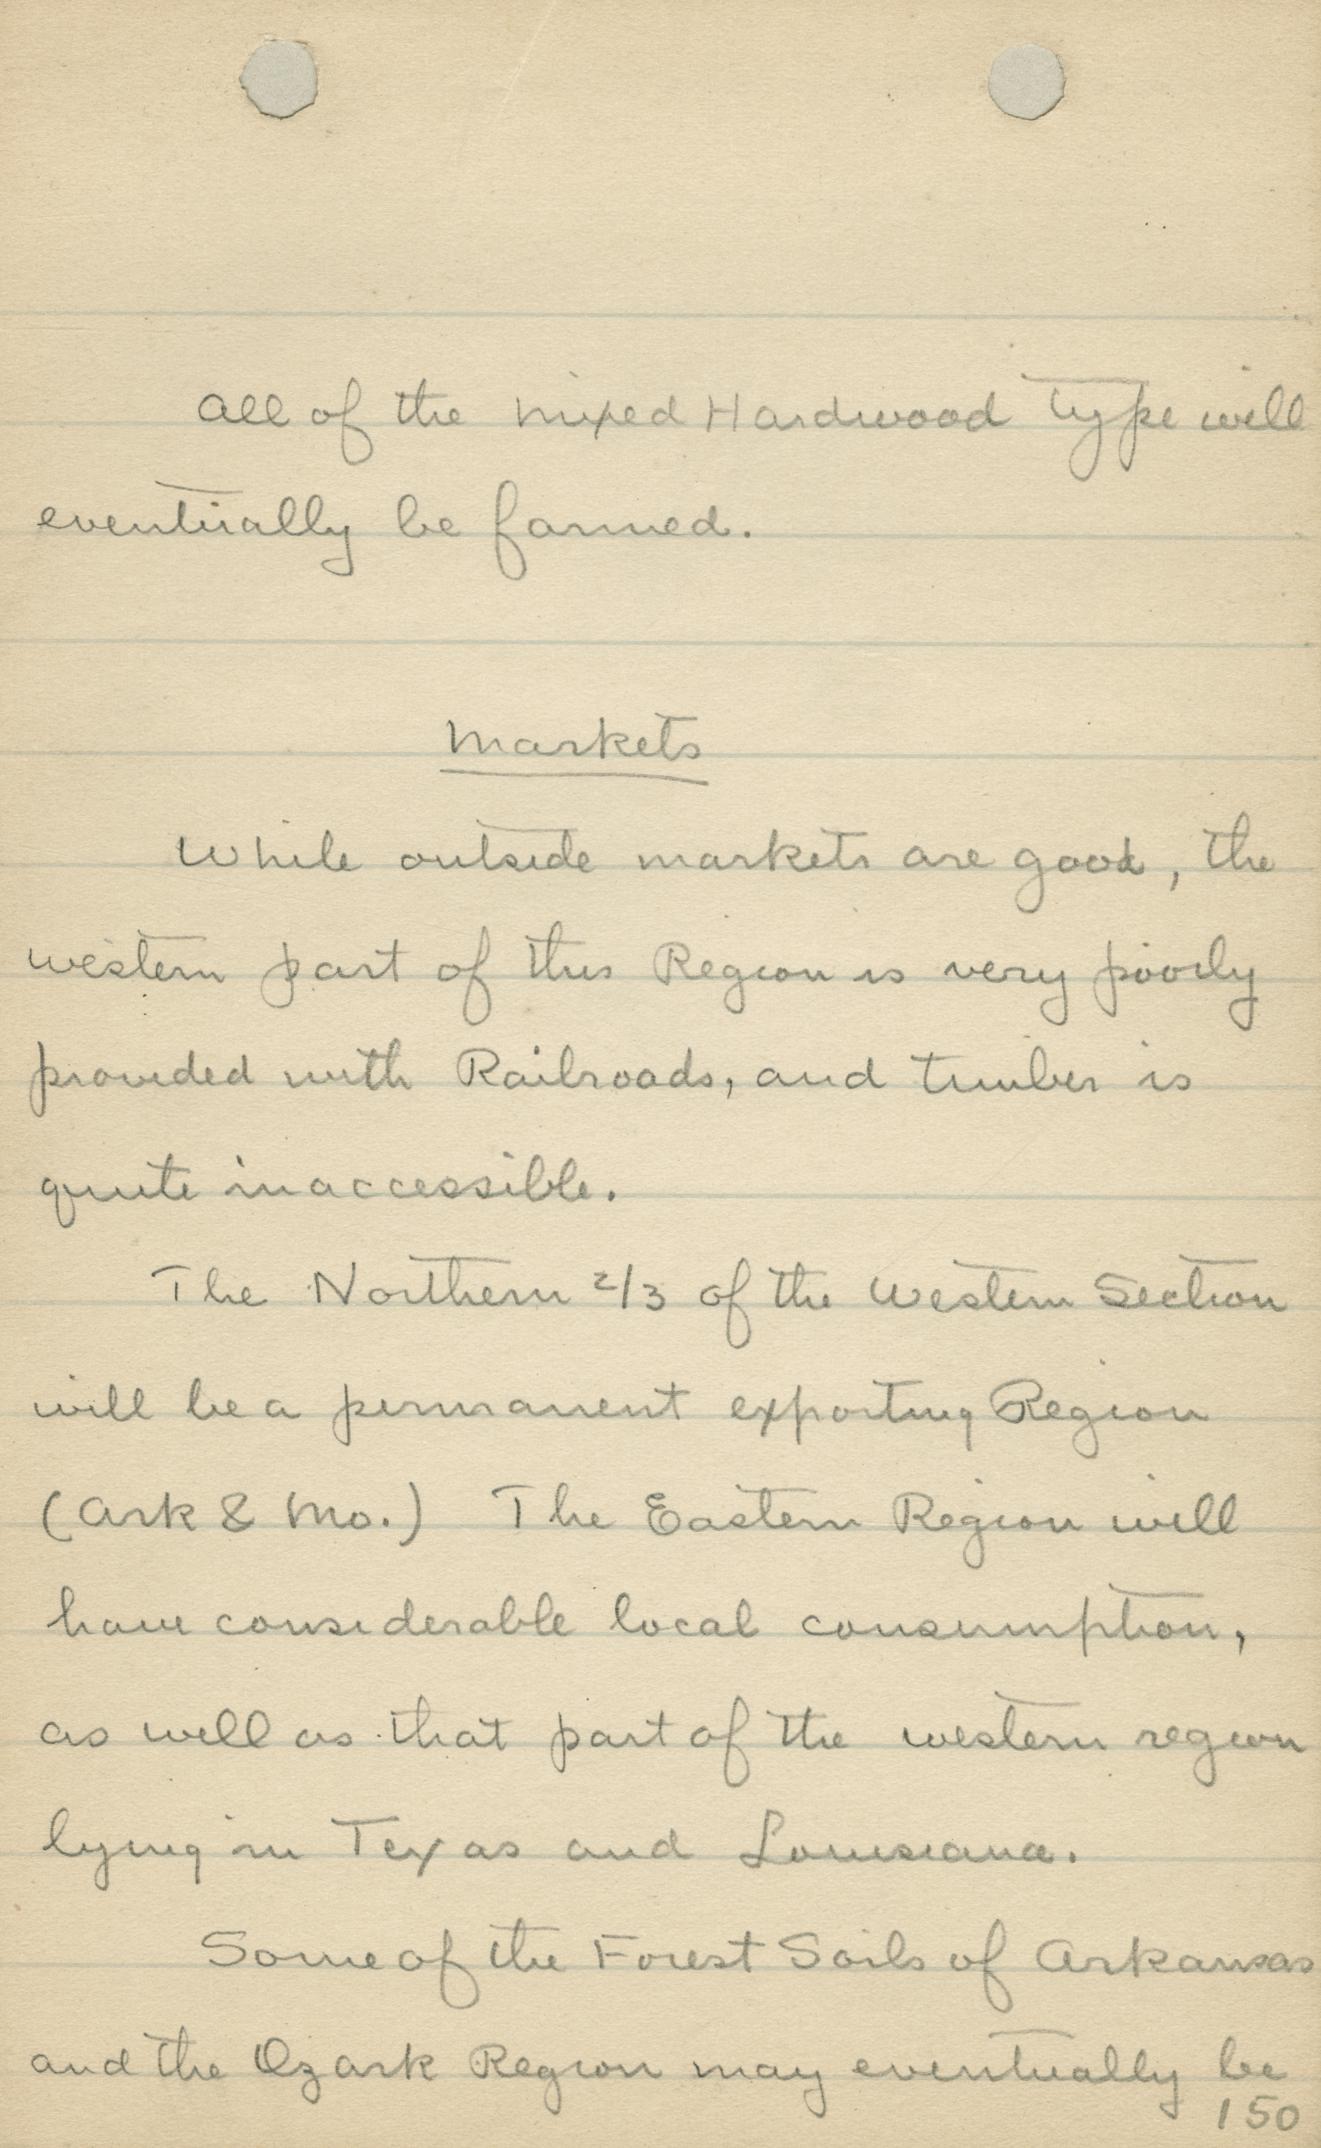 All of the Mixed Hardwood Type will
eventually be farmed.
Markets
While outside markets are good, the
western part of this Region is very poorly
provided with Railroads, and timber is
quite inaccessible.
The Northern 2/3 of the Western Section
will be a permanent exporting Region
(Ark & Mo.) The Eastern Region will
have considerable local consumption,
as well as that part of the western region
lying in Texas and Louisiana.
Some of the Forest Soils of Arkansas
and the Ozark Region may eventually be
150